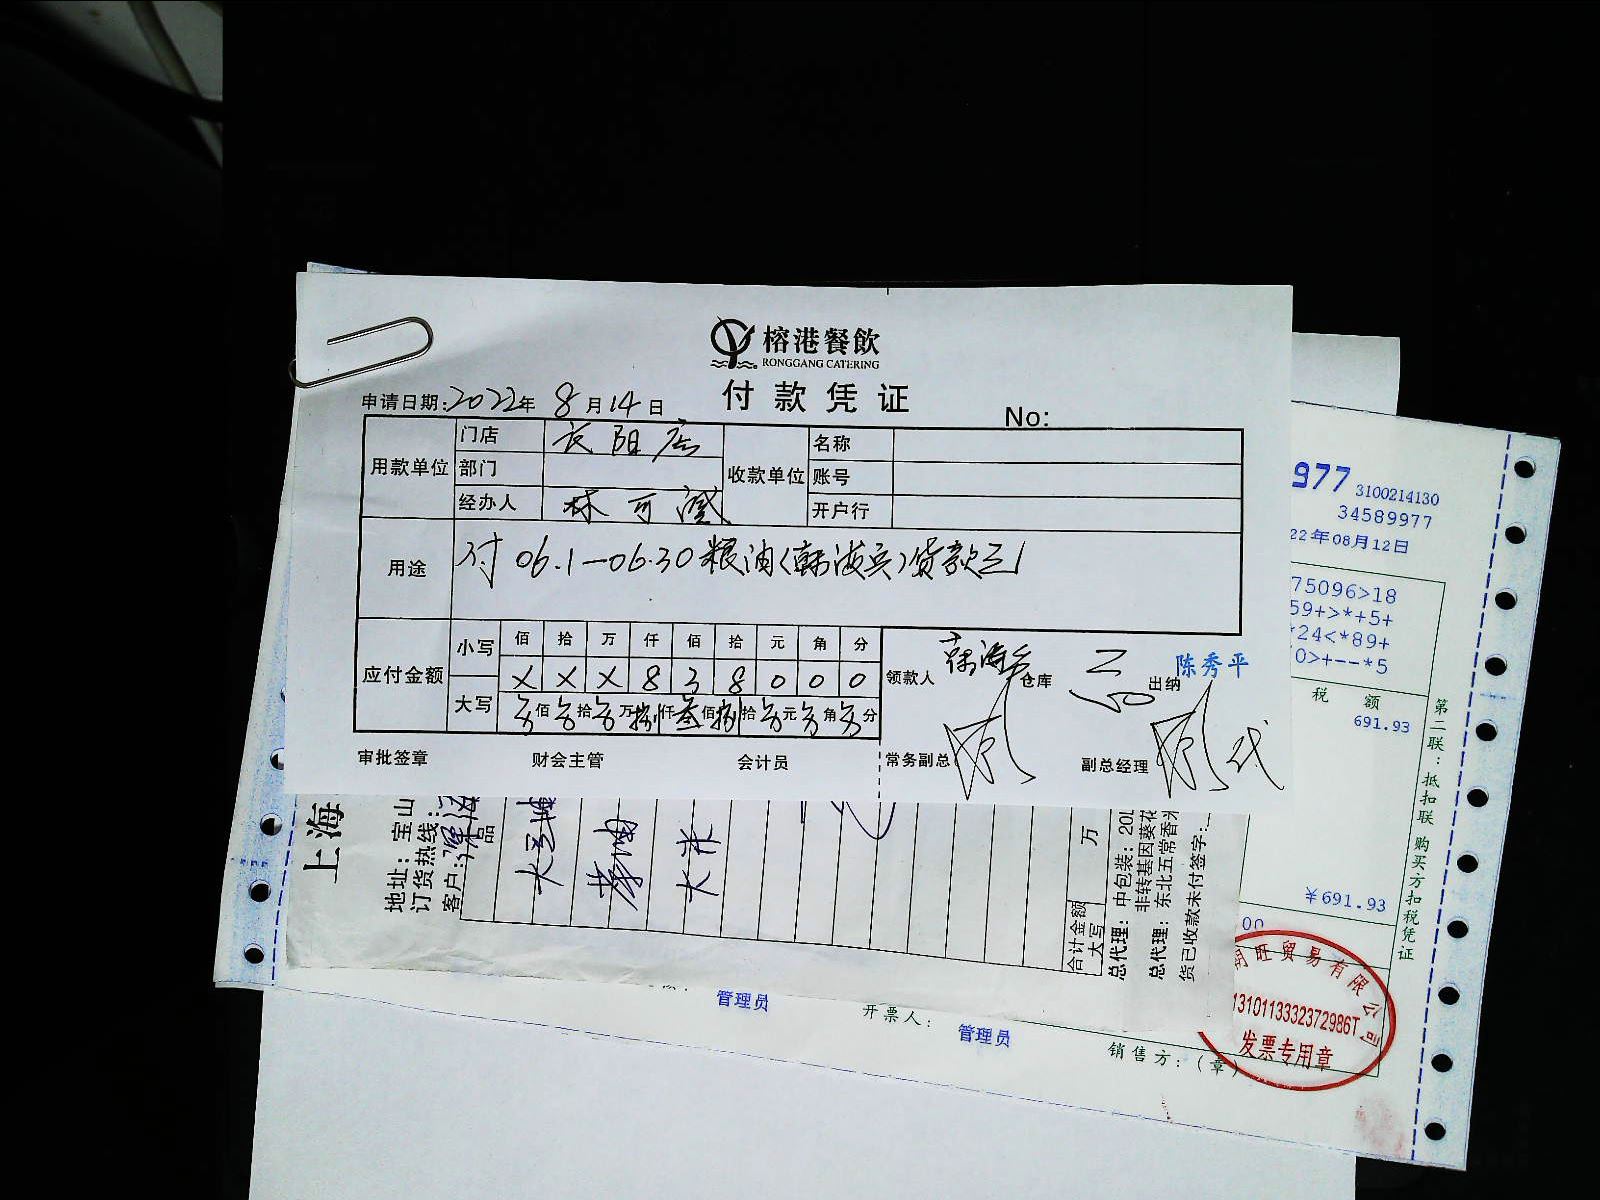 榕港餐飲
RONGGANG CATERING
付款凭证
申请日期:2022年 8月14日
No:
用款单位 门店 长阳店 收款单位 名称
部门 账号
经办人 林可 开户行
用途 付 06.1—06.30粮油(韩海兵)货款
应付金额 小写 佰 拾 万 仟 佰 拾 元 角 分
X X X 8 3 8 0 0 0
大写 佰 拾 万 捌仟 叁佰 捌拾 元 角 分
领款人 仓库 出纳 陈秀平
审批签章 财会主管 会计员 常务副总 副总经理
977 3100214130
34589977
22年08月12日
75096>18
59+>*+5+
*24<*89+
0>+--*5
税 额
691.93
¥691.93
00
第二联:抵扣联 购买方扣税凭证
上海
地址:宝山
订货热线:
客户:
大米
万
合计金额
大写
总代理:中包装:20L
非转基因葵花
总代理:东北五常香米
货已收款未付签字:
管理员
开票人:
管理员
销售方:(章)
旺贸易有限公司
1310113332372986T
发票专用章